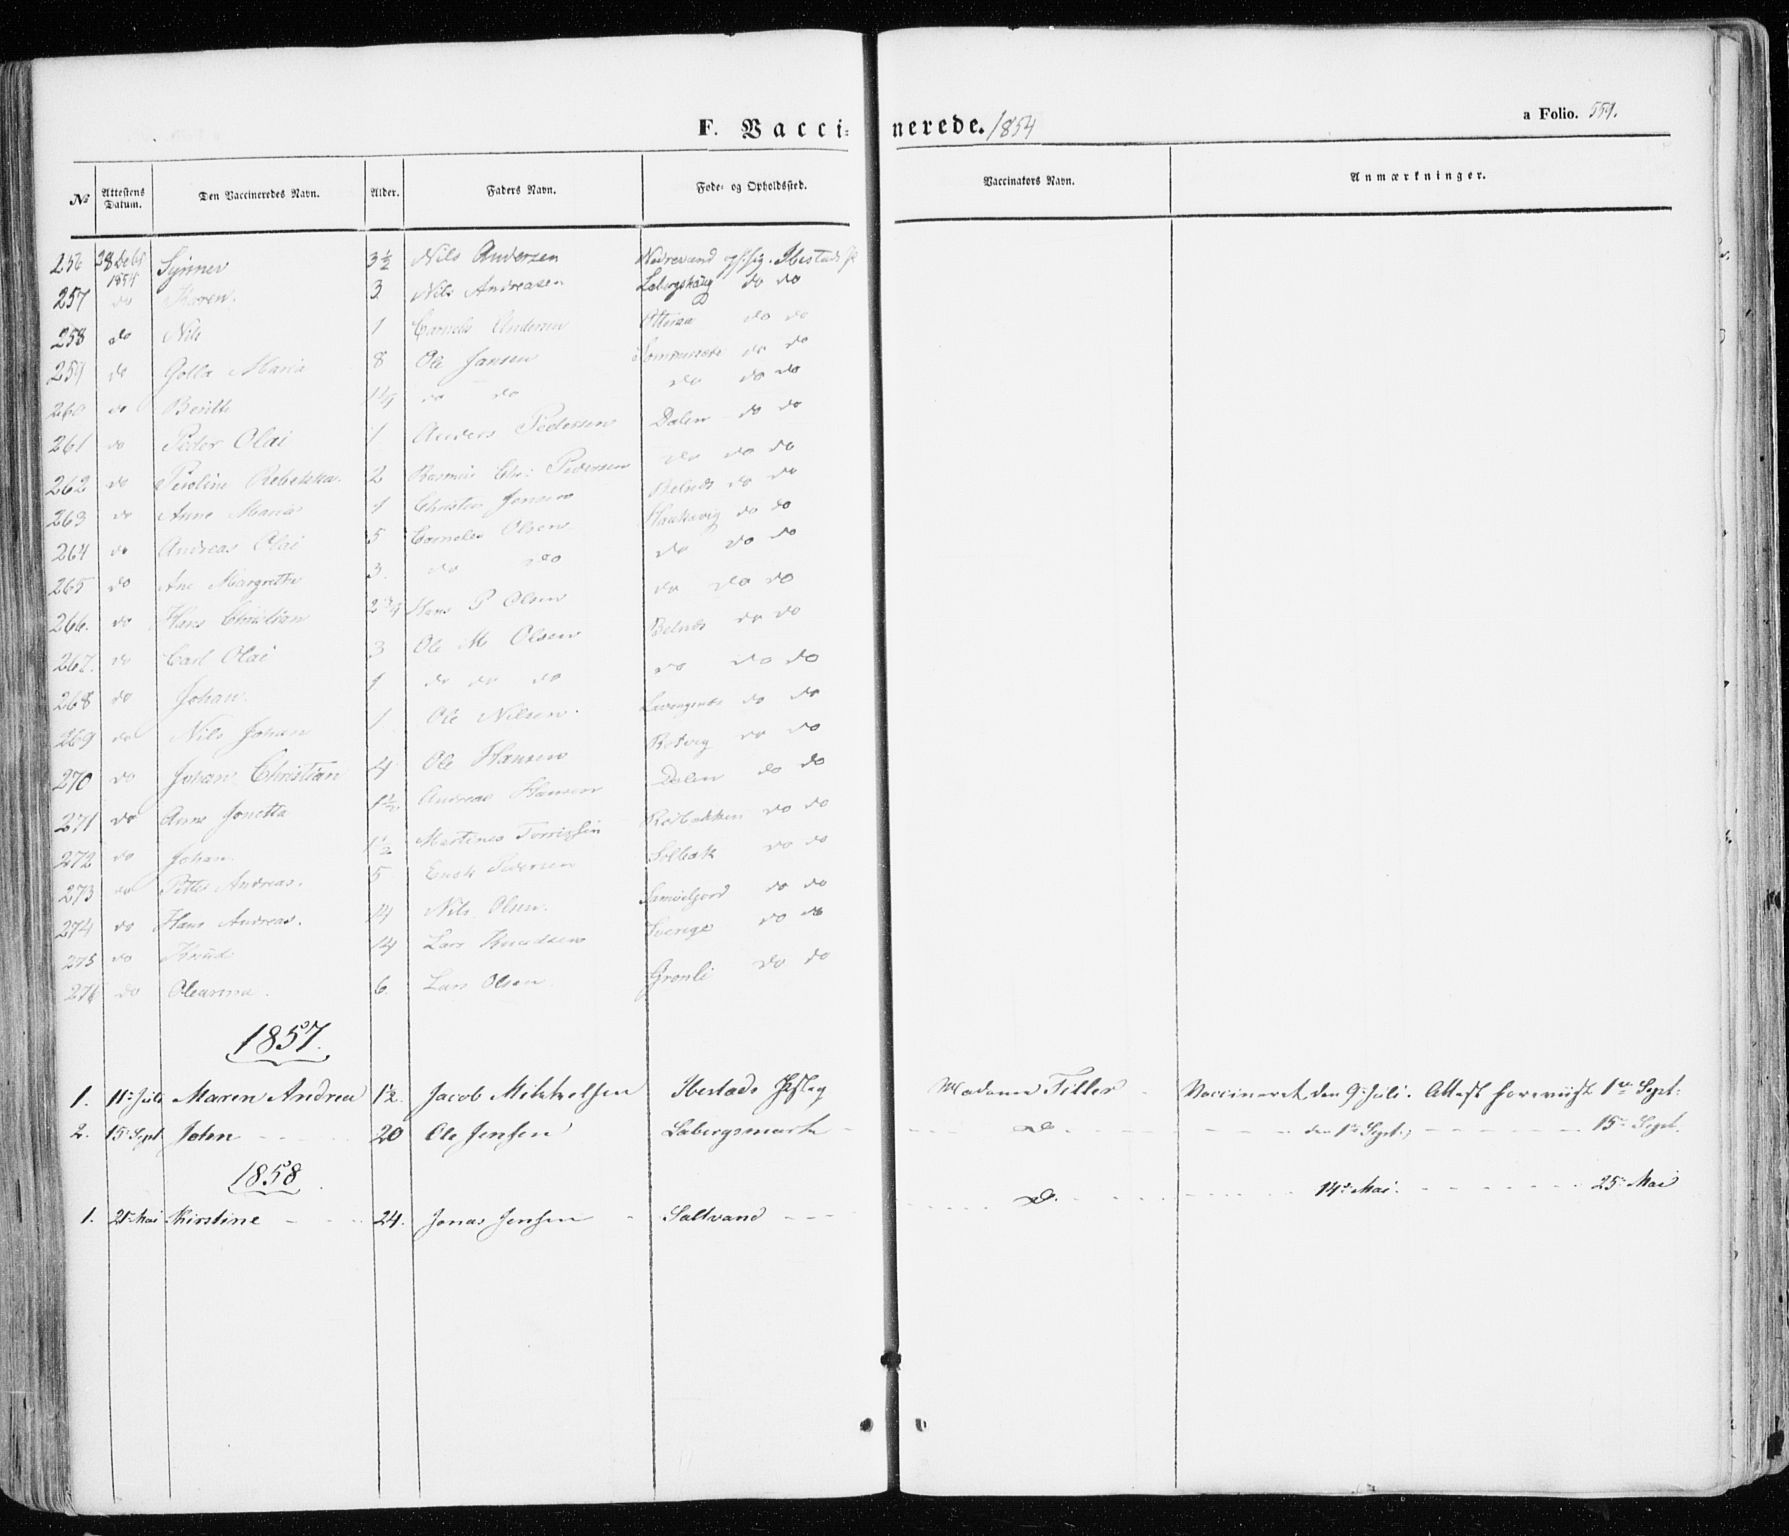 F. Vacci: nerede. 1854
a Folio. 551.
No Attestens Datum. Den Vaccineredes Navn. Alder. Faders Navn. Føde- og Opholdssted. Vaccinators Navn. Anmærkninger.
256 28 Decbr 1854 Synnev 3½ Nils Andersen Nedrevand Ibestads
257 do Karen. 3 Nils Andreasen Labergshaug do do
258 do Nils 1 Cornelis Andersen do do
259 do Golla Maria 8 Ole Jansen do do
260 do Berith do do do do do
261 do Peder Olai 1 Anders Pedersen Dalen do do
262 do Peroline Rebekka. 2 Rasmus Chr: Pedersen do do do
263 do Anne Maria 1 Christen Jensen do do
264 do Andreas Olai 5 Cornelius Olsen Haakavig do do
265 do Ane Margrethe 3. do do do do do
266. do Hans Christian 2¾ Hans P Olsen do do do
267. do Carl Olai 3 Ole M Olsen do do
268 do Johan. 1 do do do do do do
269 do Nils Johan 1 Ole Nilsen. do do
270 do Johan Christian 4 Ole Hansen do do
271 do Anne Jonetta 1½. Andreas Hansen Dalen do do
272 do Johan. 1½ Mortinus Rotbakken do do
273 do Petter Andreas. 5 Pedersen Solbak do do
274 do Hans Andreas. 14 Nils Olsen. do do
275 do Knud 14 Lars Knudsen Sverige do do
276 do Oleanna. 6. Lars Olsen. Grønli do do
1857.
1. 11te Juli Maren Andrea 1½. Jacob Mikkelsen Ibestads Madame Filler Vaccineret den 9de Juli. Attest foreviist 1ste Sept:
2. 15de Sept John 20 Ole Jensen Labergsmark do den 1ste Sept., 15de Sept.
1858
1. 21de Mai Kirstine 24. Jonas Jensen Saltvand do. 14de Mai. 25de Mai